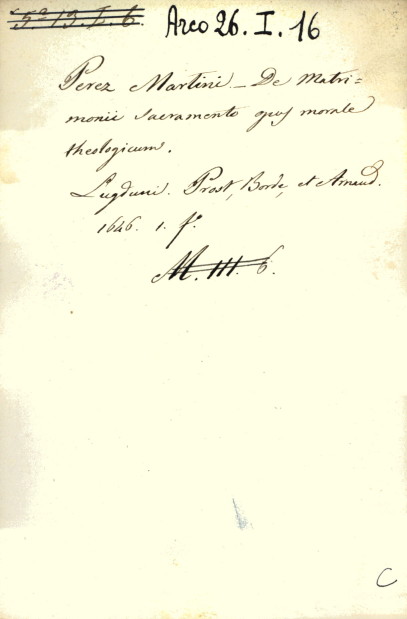 5ª 13. I. 6.
Arco 26. I. 16
Perez Martini _ De Matri=
monii sacramento opus morale
theologicum.
Lugduni. Prost, Borde, et Arnaud.
1646. 1. fº.
M. III. 6.
C